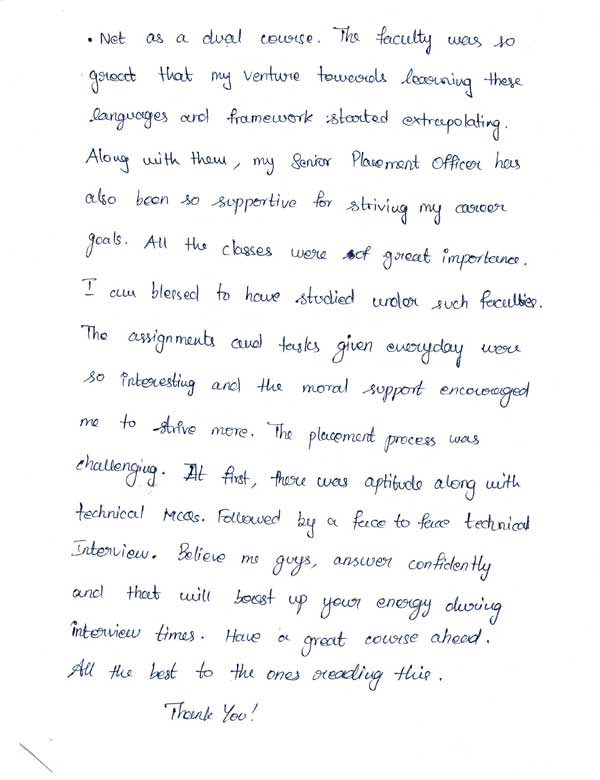 . Net as a dual course. The faculty was so
great that my venture towards learning these
languages and framework started extrapolating.
Along with them, my Senior Placement Officer has
also been so supportive for striving my career
goals. All the classes were of great importance.
I am blessed to have studied under such faculties.
The assignments and tasks given everyday were
so interesting and the moral support encouraged
me to strive more. The placement process was
challenging. At first, there was aptitude along with
technical MCQs. Followed by a face to face technical
Interview. Believe me guys, answer confidently
and that will boost up your energy during
interview times. Have a great course ahead.
All the best to the ones reading this.
Thank You!